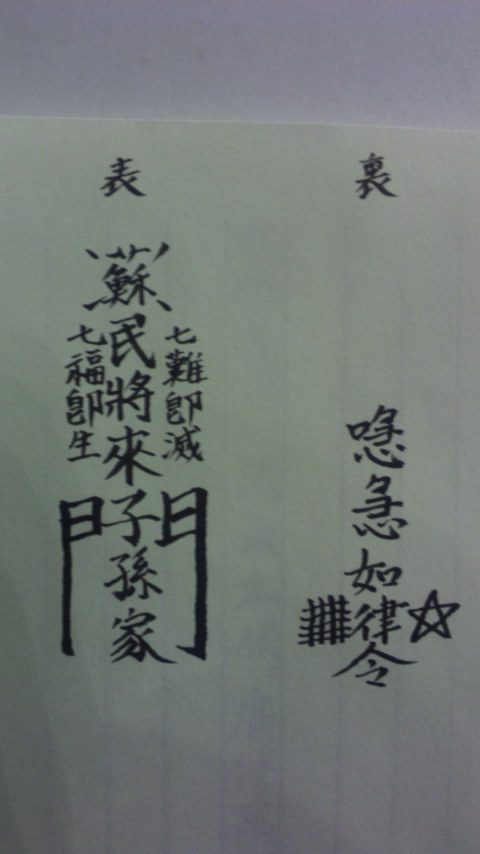 裏
喼急如律令
表
七難即滅
蘇民將來子孫家門
七福即生